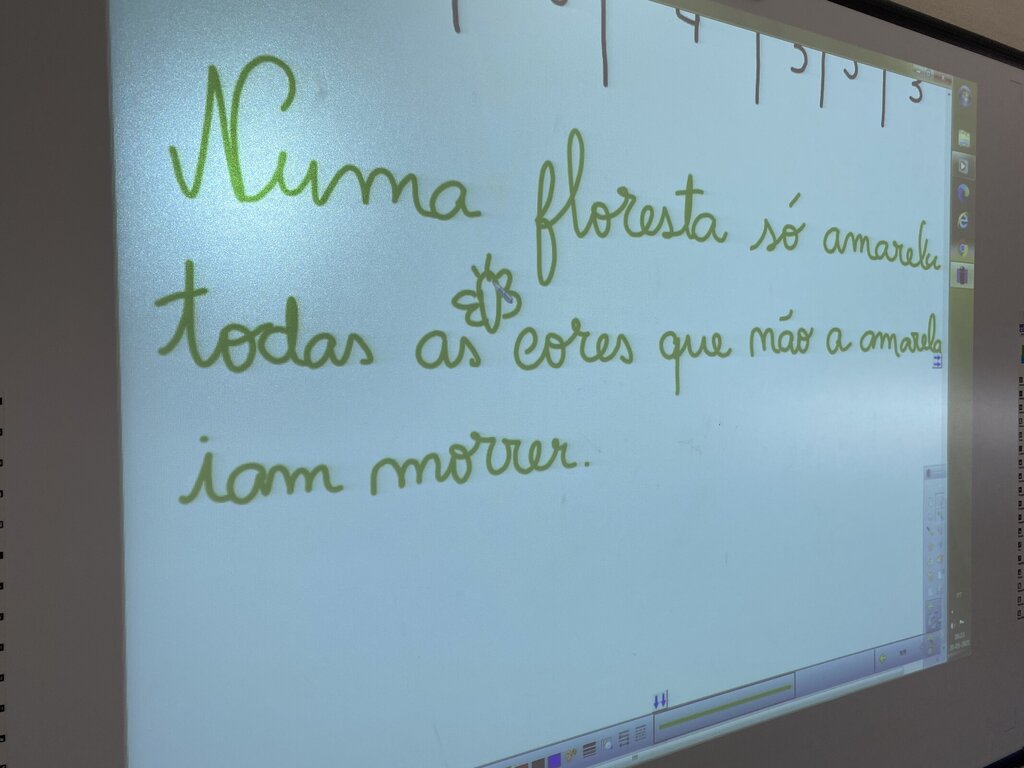 4 5 5 5
Numa floresta só
todas as cores que não a amarela
iam morrer.